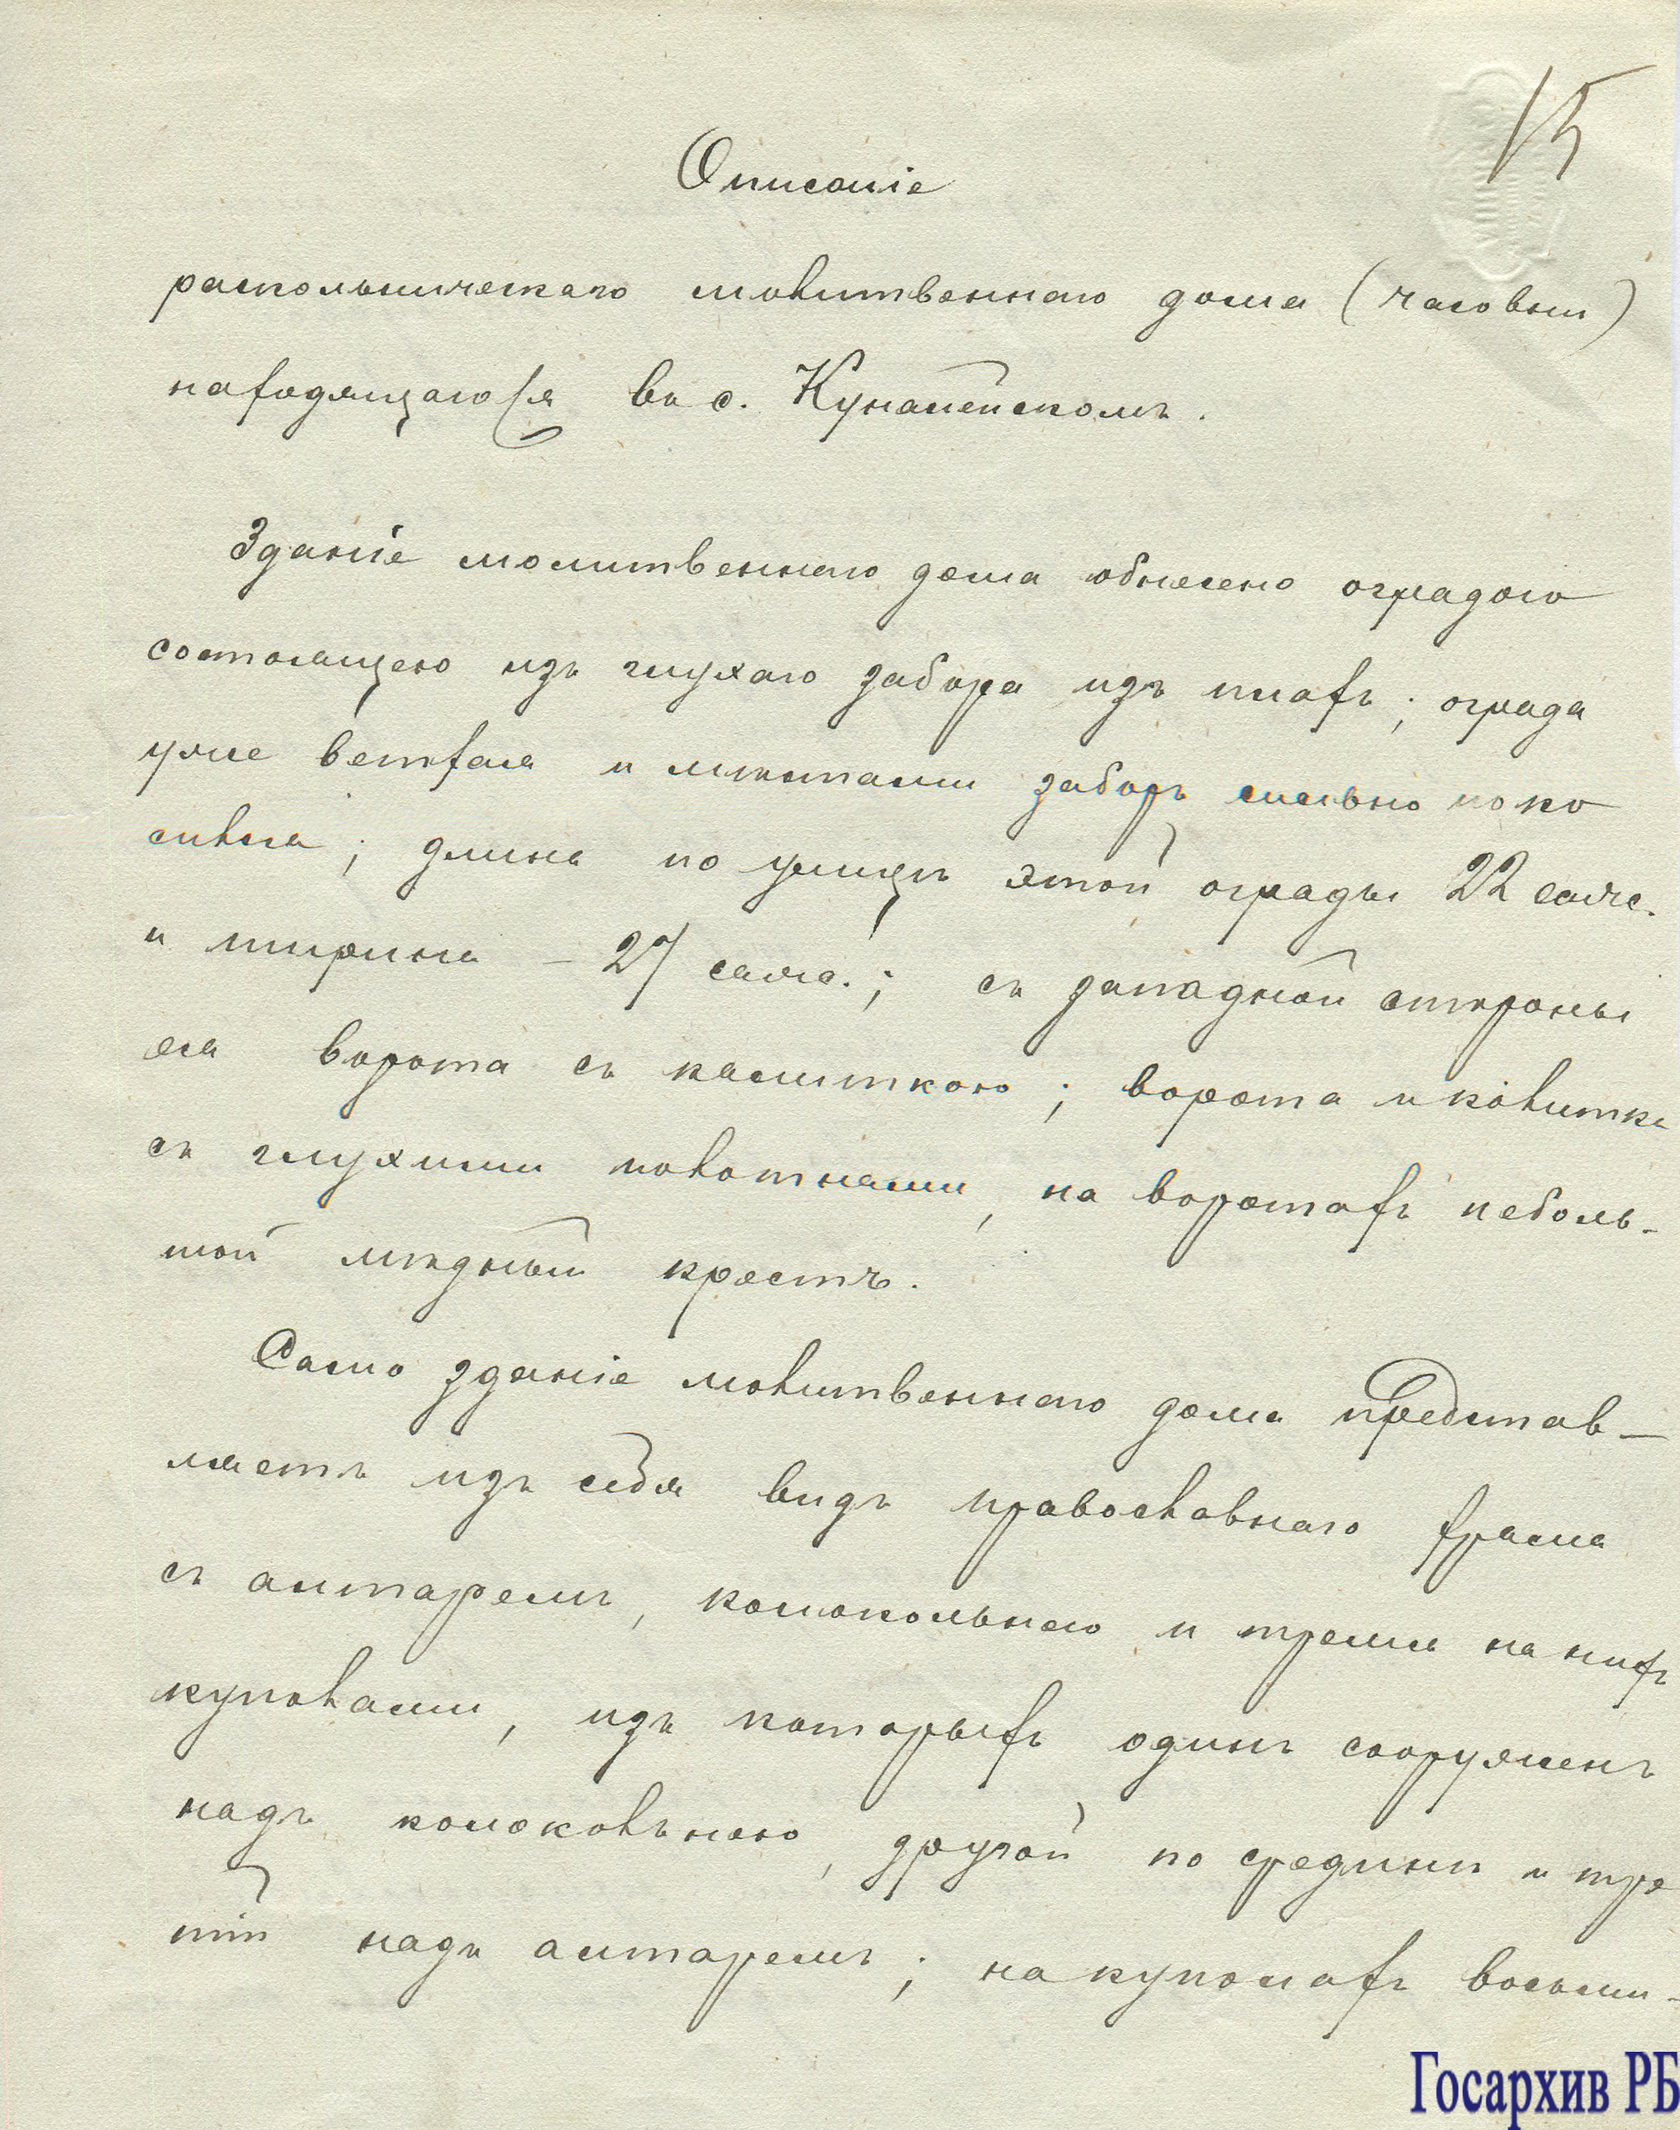 15
Описаніе
раскольническаго молитвеннаго дома (часовни)
находящагося въ с. Куналейскомъ.
Зданіе молитвеннаго дома обнесено оградою
состоящею изъ глухаго забора изъ плахъ; ограда
уже ветхая и мѣстами заборъ сильно поко
сился; длина по улицѣ этой ограды 22 саж.
и ширина – 27 саж.; съ западной стороны
ея ворота съ калиткою; ворота и калитка
съ глухими полотнами, на воротахъ неболь-
шой мѣдный крестъ.
Само зданіе молитвеннаго дома представ-
ляетъ изъ себя видъ православнаго храма
съ алтаремъ, колокольнею и тремя на нихъ
куполами, изъ которыхъ одинъ сооруженъ
надъ колокольнею, другой по срединѣ и тре
тій надъ алтаремъ; на куполахъ восьми-
Госархив РБ